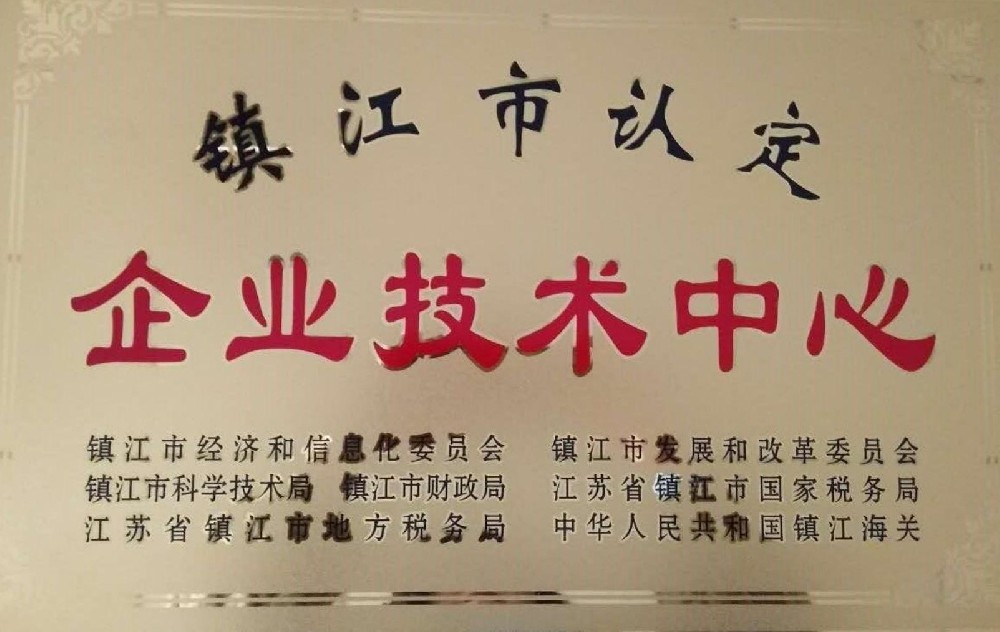 镇江市认定
企业技术中心
镇江市经济和信息化委员会 镇江市发展和改革委员会
镇江市科学技术局 镇江市财政局 江苏省镇江市国家税务局
江苏省镇江市地方税务局 中华人民共和国镇江海关